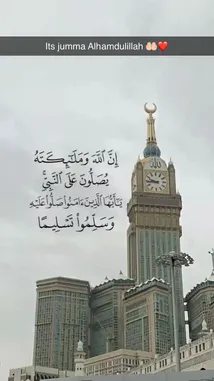 Its jumma Alhamdulillah 🤲🏻❤️
إِنَّ ٱللَّهَ وَمَلَـٰٓئِكَتَهُۥ
يُصَلُّونَ عَلَى ٱلنَّبِىِّ ۚ
يَـٰٓأَيُّهَا ٱلَّذِينَ ءَامَنُوا۟ صَلُّوا۟ عَلَيْهِ
وَسَلِّمُوا۟ تَسْلِيمًا